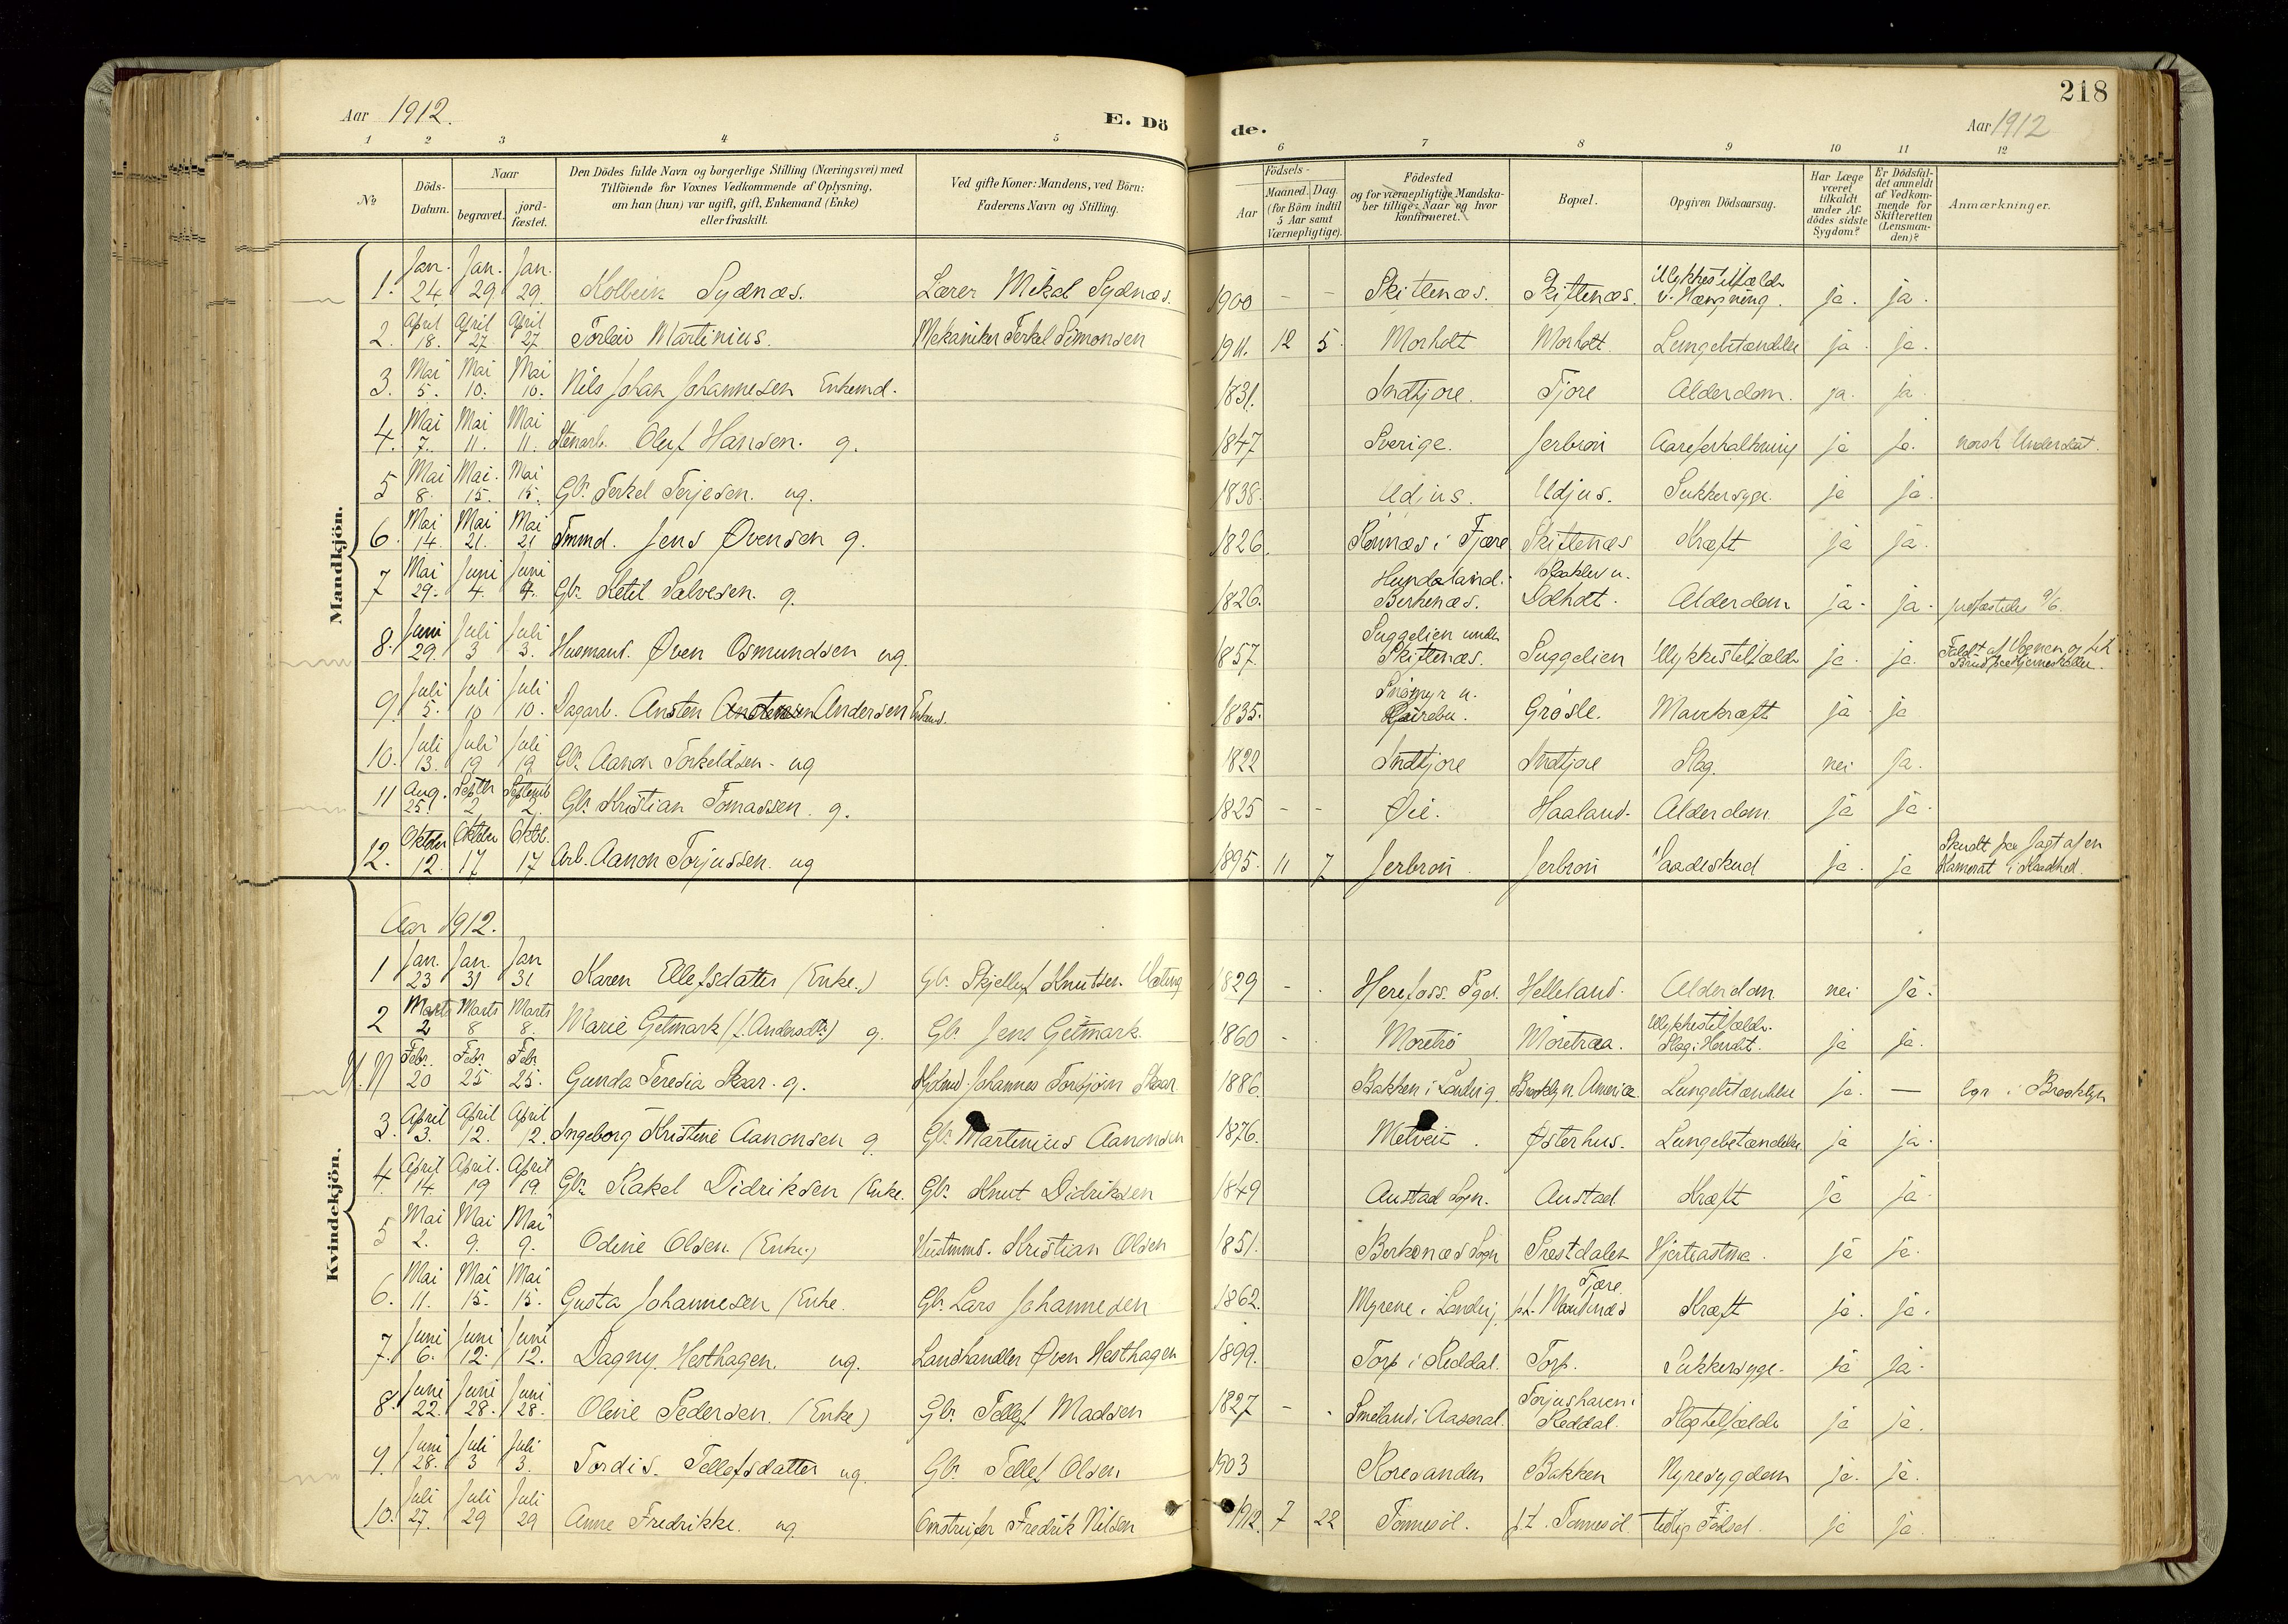 218
Aar 1912.
E. Dö
de.
Aar 1912
1 2 3 4 5 6 7 8 9 10 11 12
№
Döds-
Datum.
Naar
begravet.
jord-
fæstet.
Den Dödes fulde Navn og borgerlige Stilling (Næringsvei) med
Tilföiende for Voxnes Vedkommende af Oplysning,
om han (hun) var ugift, gift, Enkemand (Enke)
eller fraskilt.
Ved gifte Koner: Mandens, ved Börn:
Faderens Navn og Stilling.
Födsels-
Aar
Maaned. Dag.
(for Börn indtil
5 Aar samt
Værnepligtige).
Födested
og for værnepligtige Mandska-
ber tillige: Naar og hvor
konfirmeret.
Bopæl.
Opgiven Dödsaarsag.
Har Læge
været
tilkaldt
under Af-
dödes sidste
Sygdom?
Er Dödsfal-
det anmeldt
af Vedkom-
mende for
Skifteretten
(Lensman-
den)?
Anmærkninger.
Mandkjön.
1. Jan. 24. Jan. 29 Jan. 29. Kolbein Sydnæs. Lærer Mikal Sydnæs. 1900 - - Skiftenæs. Skiftenæs. Ulykkestilfælde v. Hængning. ja. ja.
2. April 18. April 27 April 27 Torleiv Martinius. Mekaniker Terkel Simonsen 1911. 12 5. Morholt Morholt Lungebetændelse ja. ja.
3. Mai 5. Mai 10. Mai 10. Nils Johan Johannesen Enkemd. 1831. Indtjore. Tjore Alderdom. ja. ja
4. Mai 7. Mai 11. Mai 11. Stenarb. Oluf Hansen. g. 1847 Sverige. Jerbron Aareforkalkning ja ja. norsk Undersaat.
5 Mai 8. Mai 15. Mai 15. Gbr. Terkel Terjesen. ug. 1838. Udjus. Udjus. Sukkersyge. ja ja.
6. Mai 14. Mai 21. Mai 21 Tmmd. Jens Øvensen g. 1826. Rønnæs i Fjære Skiftenæs Kræft ja ja.
7 Mai 29. Juni 4. Juni 4. Gbr. Ketil Salvesen. g. 1826. Hundsland. Birkenæs. u. Dolholt. Alderdom ja. ja. jordfæstedes 9/6.
8. Juni 29. Juli 3 Juli 3. Husmand. Øven Osmundsen ug. 1857. Suggelien under Skiftenæs. Suggelien Ulykkestilfælde ja. ja. Faldt af Vognen og fik Brud paa Hjerneskallen.
9. Juli 5. Juli 10 Juli 10. Dagarb. Ansten Anstensen Andersen Enkemd. 1835. u. Grøsle. Mavekræft ja ja
10. Juli 13. Juli 19 Juli 19 Gbr. Aanon Torkeldsen. ug 1822 Indtjore Indtjore Slag. nei ja.
11 Aug. 25. Septbr 2 Septemb 2. Gbr. Kristian Tomassen. g. 1825 - - Øie. Haaland. Alderdom ja ja.
12. Oktober 12. Oktober 17 Oktob. 17 Arb. Aanon Torjussen. ug 1895. 11 7 Jerbron. Jerbron Vaadeskud ja. ja Skudt paa Jagt af en Kamerat i Vaadhed.
Kvindekjön.
Aar 1912.
1 Jan. 23 Jan. 31 Jan 31 Karen Ellefsdatter (Enke.) Gbr. Skjellef Knutsen. 1829 - . Herefoss Sogn. Helleland. Alderdom nei ja.
2 Marts 2 Marts 8 Marts 8. Marie Getmark (f. Andersdtr.) g. Gbr. Jens Getmark. 1860 - . Moretrø Moretraa. Ulykkestilfælde. Slag i Hovedet. ja ja.
Febr. 20 Febr. 25 Febr 25. Gunda Teresia Skaar. g. Johannes Torbjørn Skaar 1886. Bakken i Landvig. Brooklyn. America. Lungebetændelse ja. — bgr. i Brooklyn
3. April 3. April 12. April 12. Ingeborg Kristine Aanonsen g. Gbr. Martinius Aanonsen 1876. Metveit. Østerhus. Lungebetændelse ja ja.
4. April 14. April. 19 April 19. Gbr. Rakel Didriksen (Enke. Gbr. Knut Didriksen 1849 Austad Sogn. Austad Kræft ja ja.
5 Mai 2. Mai 9. Mai 9. Odine Olsen. (Enke.) Hustmnd. Kristian Olsen 1851. Berkenæs Sogn Prestdalen Hjerteastma. ja ja.
6. Mai 11. Mai 15. Mai 15. Gusta Johannesen (Enke. Gbr. Lars Johannesen 1862. Myrene i Landvig p.t. Fjære. Kræft ja. ja.
7. Juni 6. Juni 12. Juni 12. Dagny. Hesthagen. ug. Landhandler Øven Hesthagen 1899. Torp i Reddal. Torp. Sukkersyge. ja ja.
8. Juni 22. Juni 28. Juni 28. Oline Pedersen. (Enke) Gbr. Tellef Madsen 1827 - . Smeland i Aaseral. Torjushaven i Reddal. Slagtilfælde ja ja.
9. Juni 28. Juli 3 Juli 3. Tordis. Tellefsdatter ug. Gbr. Tellef Olsen 1903 Roresanden Bakken Nyresygdom ja. ja.
10. Juli 27. Juli 29 Juli 29 Anne Fredrikke. ug Omstreifer Fredrik Nilsen 1912. 7 22 Tonnesøl. p.t. Tonnesøl. tidlig Fødsel. ja ja.